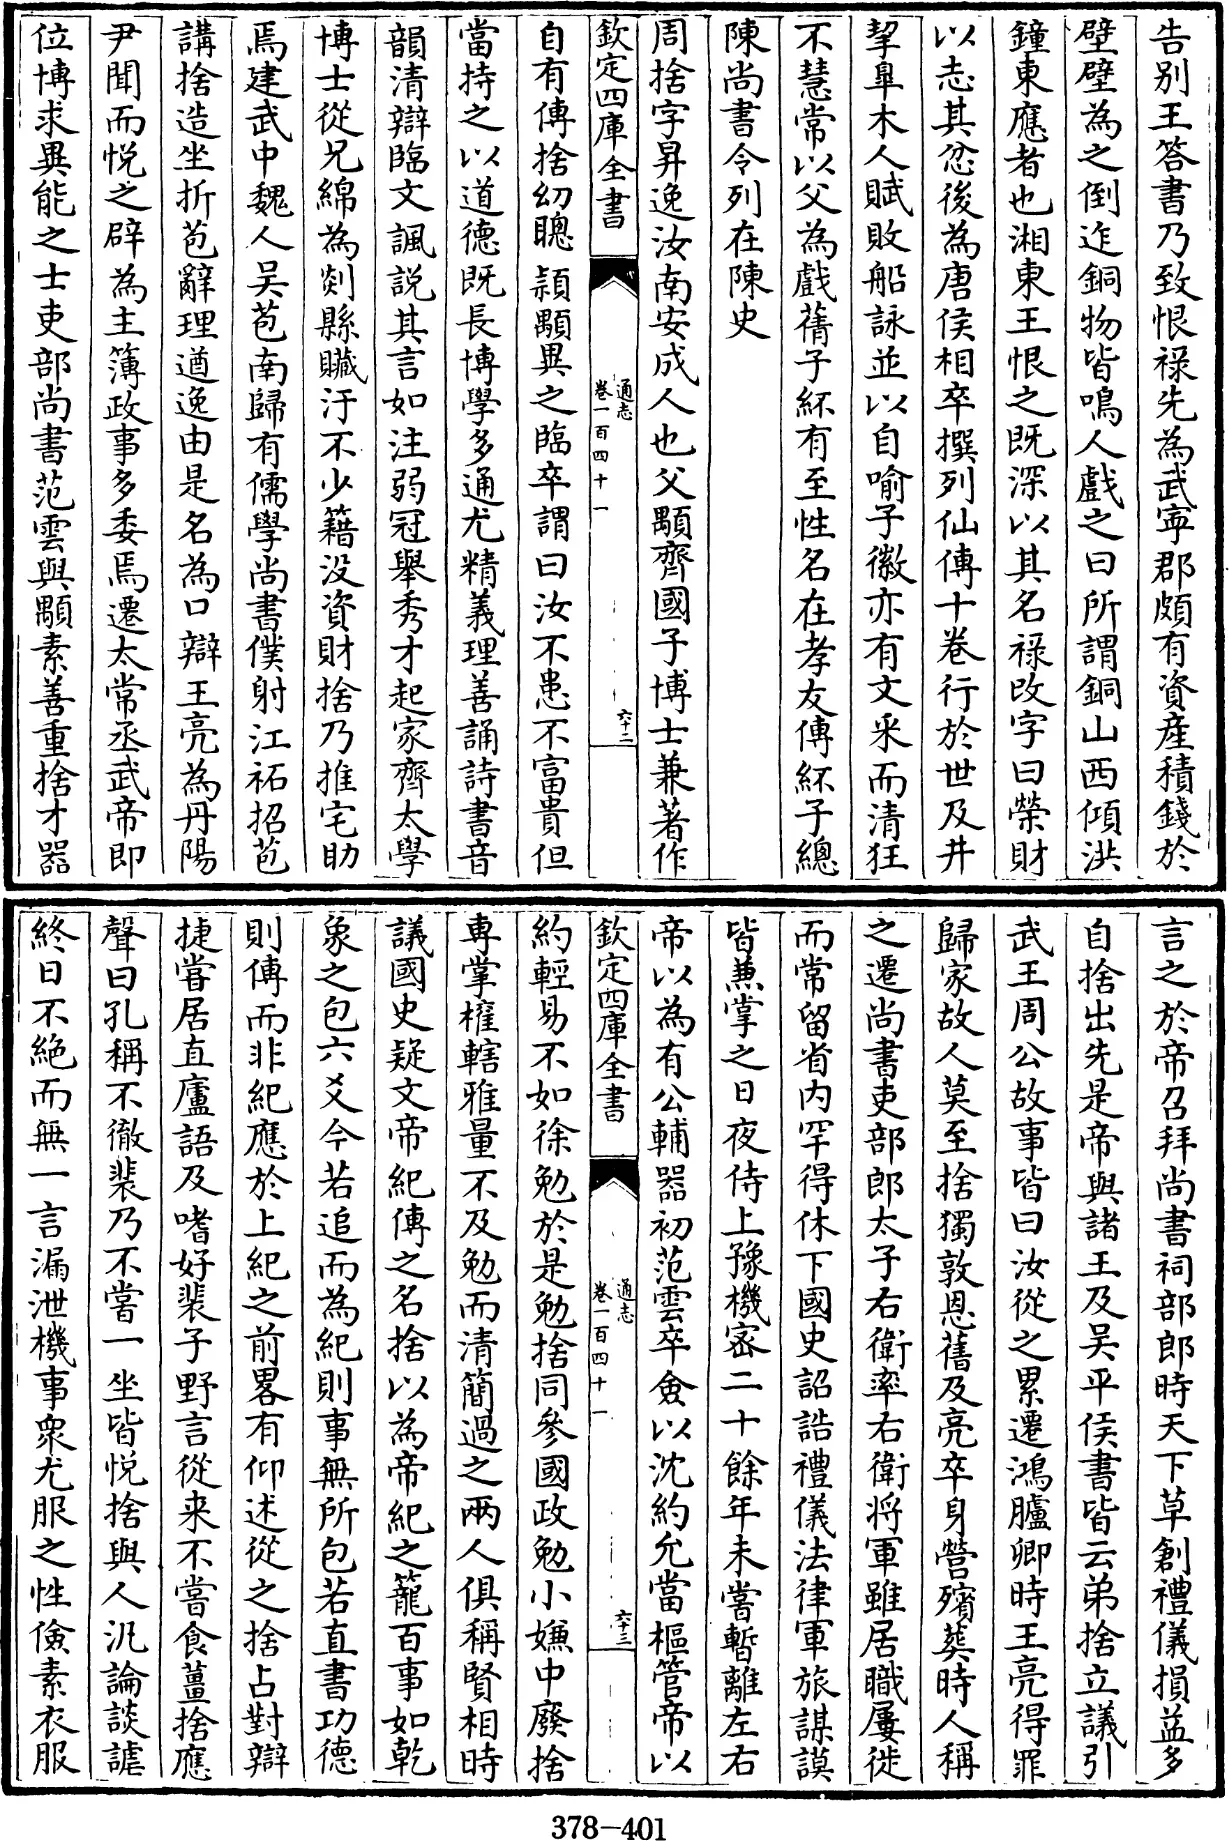 告别王答書乃致恨禄先為武寧郡頗有資産積錢於
壁壁為之倒迮銅物皆鳴人戲之曰所謂銅山西傾洪
鐘東應者也湘東王恨之既深以其名禄改字曰榮財
以志其忿後為唐侯相卒撰列仙傳十卷行於世及井
挈臯木人賦敗船詠並以自喻子徽亦有文采而清狂
不慧常以父為戲蒨子紑有至性名在孝友傳紑子總
陳尚書令列在陳史
周捨字昇逸汝南安成人也父顒齊國子博士兼著作
欽定四庫全書
通志
卷一百四十一
六十二
自有傳捨幼聰頴顒異之臨卒謂曰汝不患不富貴但
當持之以道德既長博學多通尤精義理善誦詩書音
韻清辯臨文諷説其言如注弱冠舉秀才起家齊太學
博士從兄綿為剡縣贓汙不少籍没資財捨乃推宅助
焉建武中魏人吴苞南歸有儒學尚書僕射江祏招苞
講捨造坐折苞辭理遒逸由是名為口辯王亮為丹陽
尹聞而悅之辟為主簿政事多委焉遷太常丞武帝即
位博求異能之士吏部尚書范雲與顒素善重捨才器
言之於帝召拜尚書祠部郎時天下草創禮儀損益多
自捨出先是帝與諸王及吴平侯書皆云弟捨立議引
武王周公故事皆曰汝從之累遷鴻臚卿時王亮得罪
歸家故人莫至捨獨敦恩舊及亮卒身營殯葬時人稱
之遷尚書吏部郎太子右衛率右衛将軍雖居職屢徙
而常留省内罕得休下國史詔誥禮儀法律軍旅謀謨
皆兼掌之日夜侍上豫機宻二十餘年未嘗暫離左右
帝以為有公輔器初范雲卒僉以沈約允當樞管帝以
欽定四庫全書
通志
卷一百四十一
六十三
約輕易不如徐勉於是勉捨同參國政勉小嫌中廢捨
専掌權轄雅量不及勉而清簡過之兩人俱稱賢相時
議國史疑文帝紀傳之名捨以為帝紀之籠百事如乾
象之包六爻今若追而為紀則事無所包若直書功德
則傳而非紀應於上紀之前畧有仰述從之捨占對辯
捷嘗居直廬語及嗜好裴子野言從来不嘗食薑捨應
聲曰孔稱不徹裴乃不嘗一坐皆悅捨與人汎論談謔
終日不絶而無一言漏泄機事衆尤服之性儉素衣服
378-401